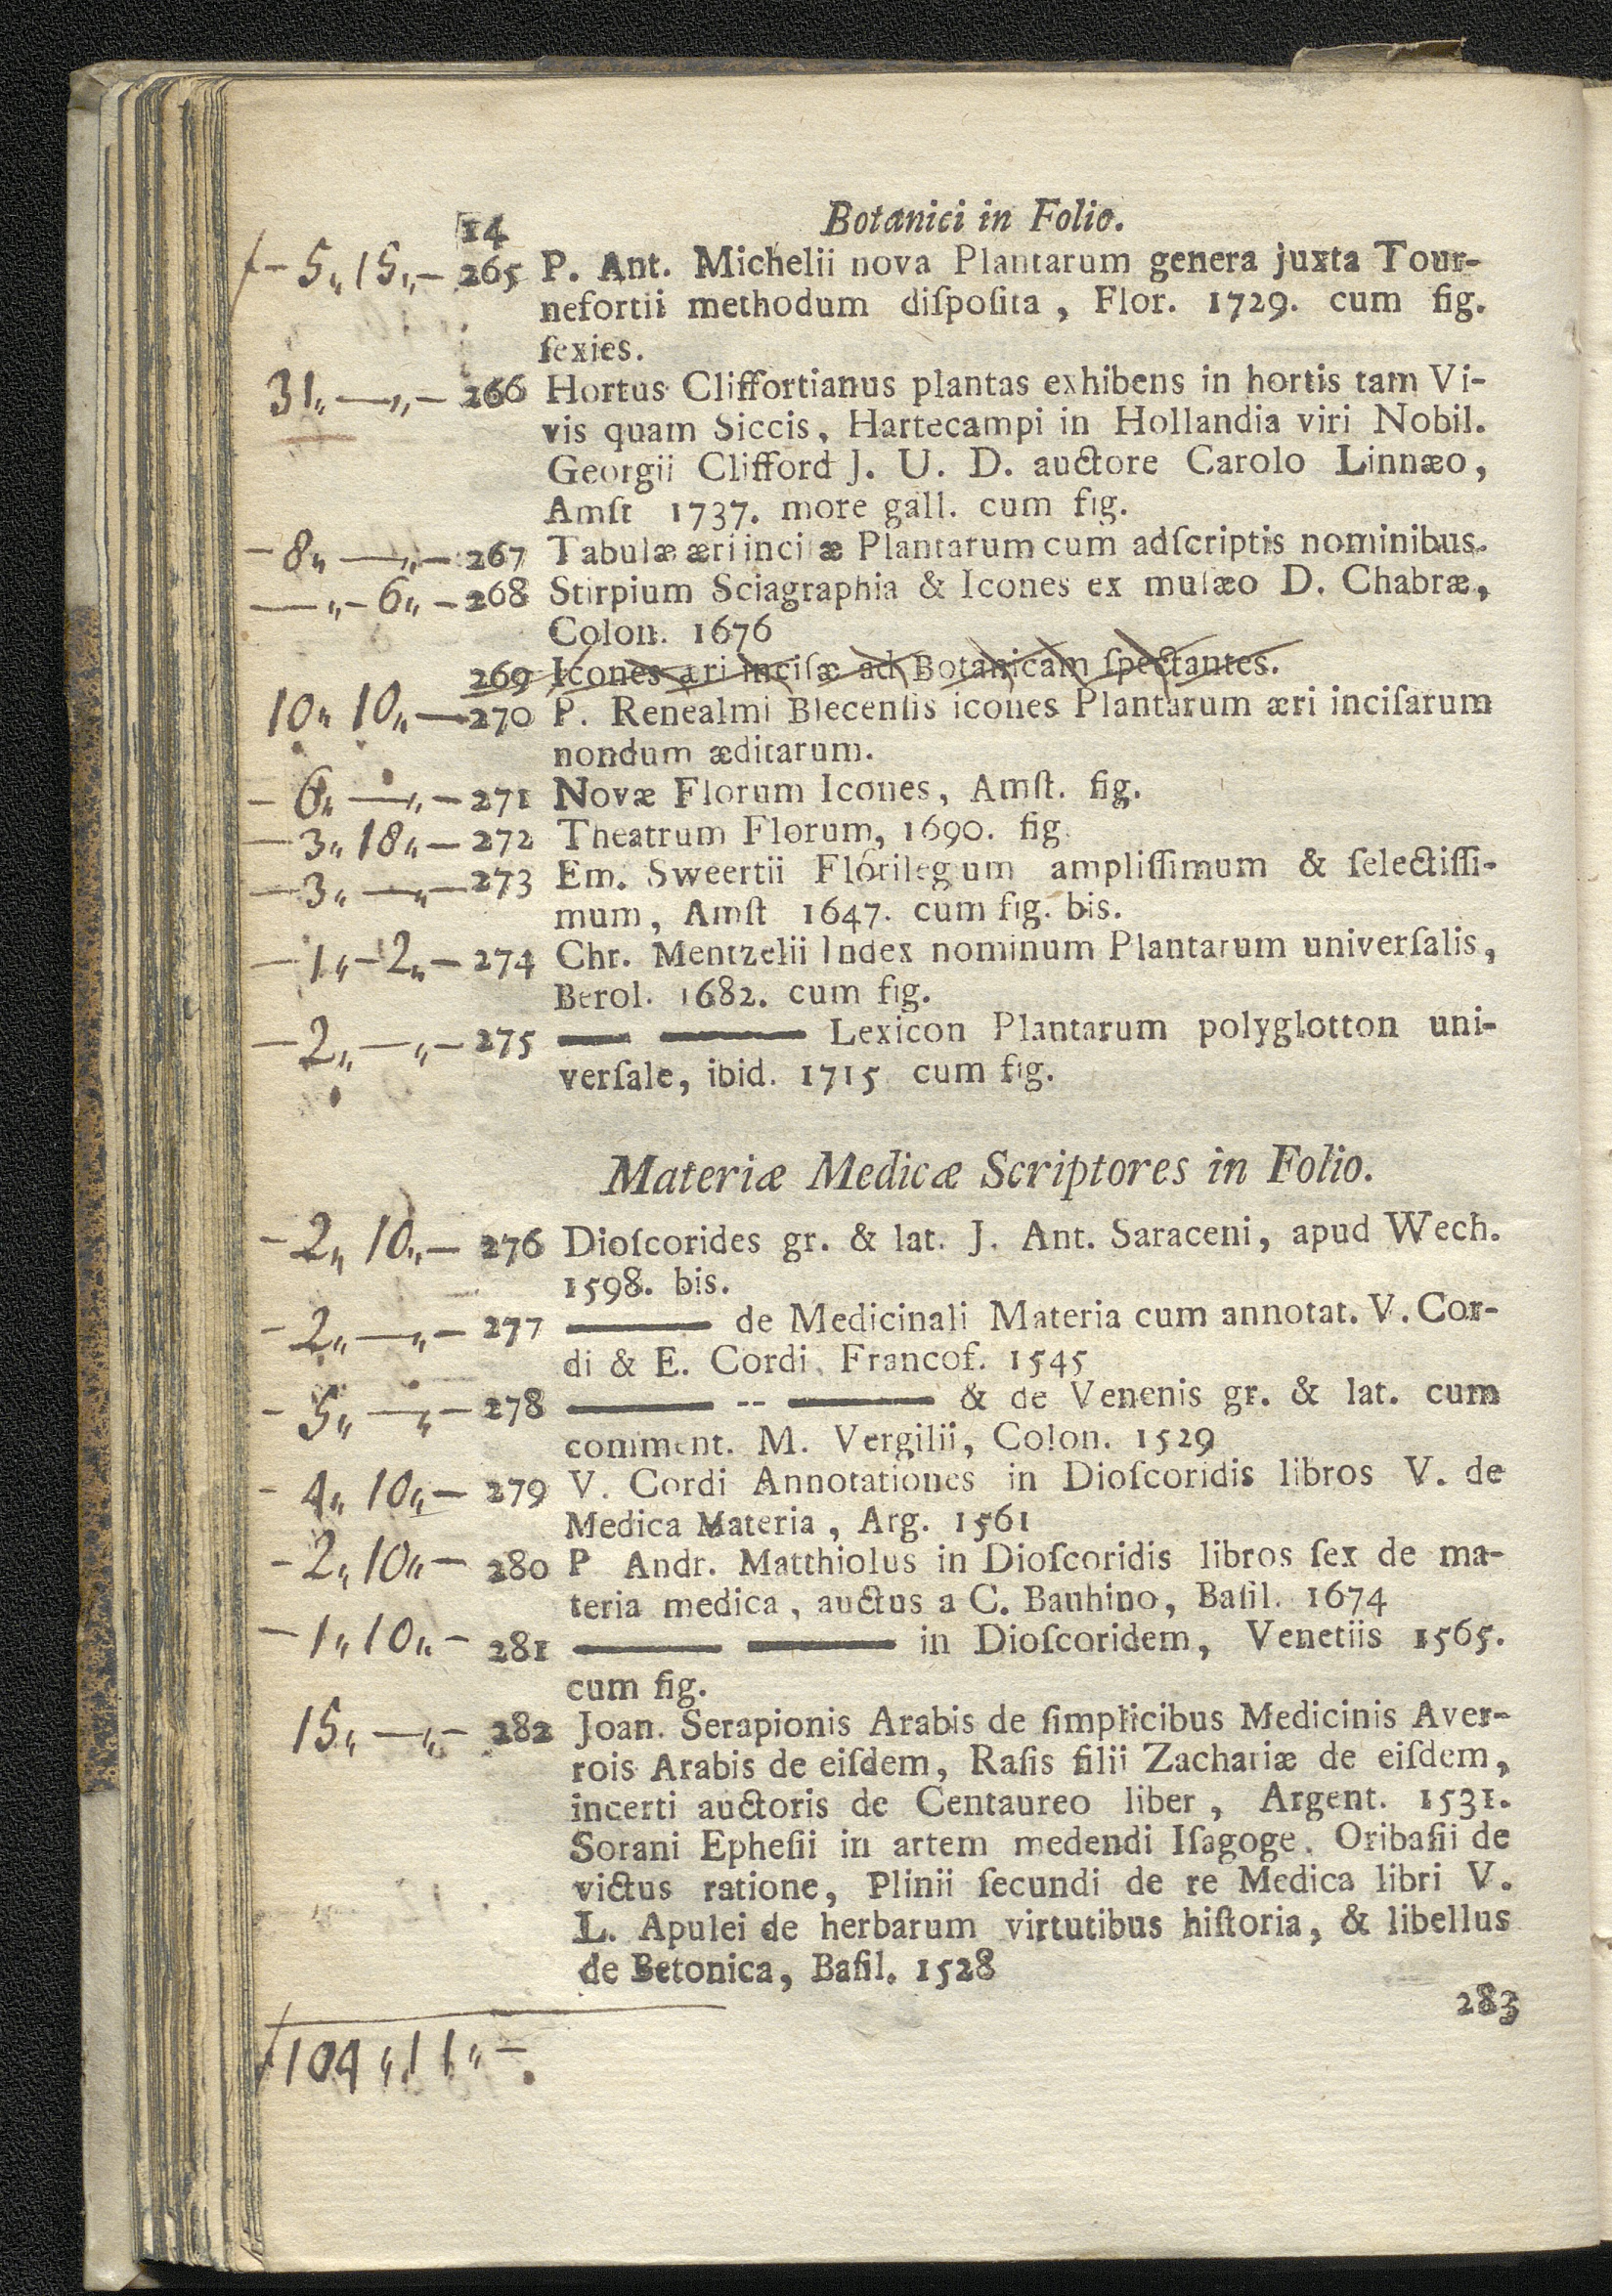 14 Botanici in Folio.
ƒ - 5,, 15,, - 265 P. Ant. Michelii nova Plantarum genera juxta Tour-
nefortii methodum diſpoſita, Flor. 1729. cum fig.
ſexies.
31,, —,, - 266 Hortus Cliffortianus plantas exhibens in hortis tam Vi-
vis quam Siccis, Hartecampi in Hollandia viri Nobil.
Georgii Clifford J. U. D. auctore Carolo Linnæo,
Amſt 1737. more gall. cum fig.
- 8,, —,, - 267 Tabulæ æri inciſæ Plantarum cum adſcriptis nominibus.
—,, - 6,, - 268 Stirpium Sciagraphia & Icones ex muſæo D. Chabræ,
Colon. 1676
269 Icones æri inciſæ ad Botanicam ſpectantes.
10,, 10,, — 270 P. Renealmi Bleceniis icones Plantarum æri inciſarum
nondum æditarum.
- 6,, —,, - 271 Novæ Florum Icones, Amſt. fig.
- 3,, 18,, - 272 Theatrum Florum, 1690. fig.
- 3,, —,, - 273 Em. Sweertii Florilegum ampliſſimum & ſelectiſſi-
mum, Amſt 1647. cum fig. bis.
- 1,, - 2,, - 274 Chr. Mentzelii Index nominum Plantarum univerſalis,
Berol. 1682. cum fig.
- 2,, —,, - 275 — — Lexicon Plantarum polyglotton uni-
verſale, ibid. 1715 cum fig.
Materiæ Medicæ Scriptores in Folio.
- 2,, 10,, - 276 Dioſcorides gr. & lat. J. Ant. Saraceni, apud Wech.
1598. bis.
- 2,, —,, - 277 — de Medicinali Materia cum annotat. V. Cor-
di & E. Cordi, Francof. 1545
- 5,, —,, - 278 — -- — & de Venenis gr. & lat. cum
comment. M. Vergilii, Colon. 1529
- 4,, 10,, - 279 V. Cordi Annotationes in Dioſcoridis libros V. de
Medica Materia, Arg. 1561
- 2,, 10,, - 280 P Andr. Matthiolus in Dioſcoridis libros ſex de ma-
teria medica, auctus a C. Bauhino, Baſil. 1674
- 1,, 10,, - 281 — — in Dioſcoridem, Venetiis 1565.
cum fig.
15,, —,, - 282 Joan. Serapionis Arabis de ſimplicibus Medicinis Aver-
rois Arabis de eiſdem, Raſis filii Zachariæ de eiſdem,
incerti auctoris de Centaureo liber, Argent. 1531.
Sorani Epheſii in artem medendi Iſagoge, Oribaſii de
victus ratione, Plinii ſecundi de re Medica libri V.
L. Apulei de herbarum virtutibus hiſtoria, & libellus
de Betonica, Baſil. 1528
283
ƒ104,, 11,, -.